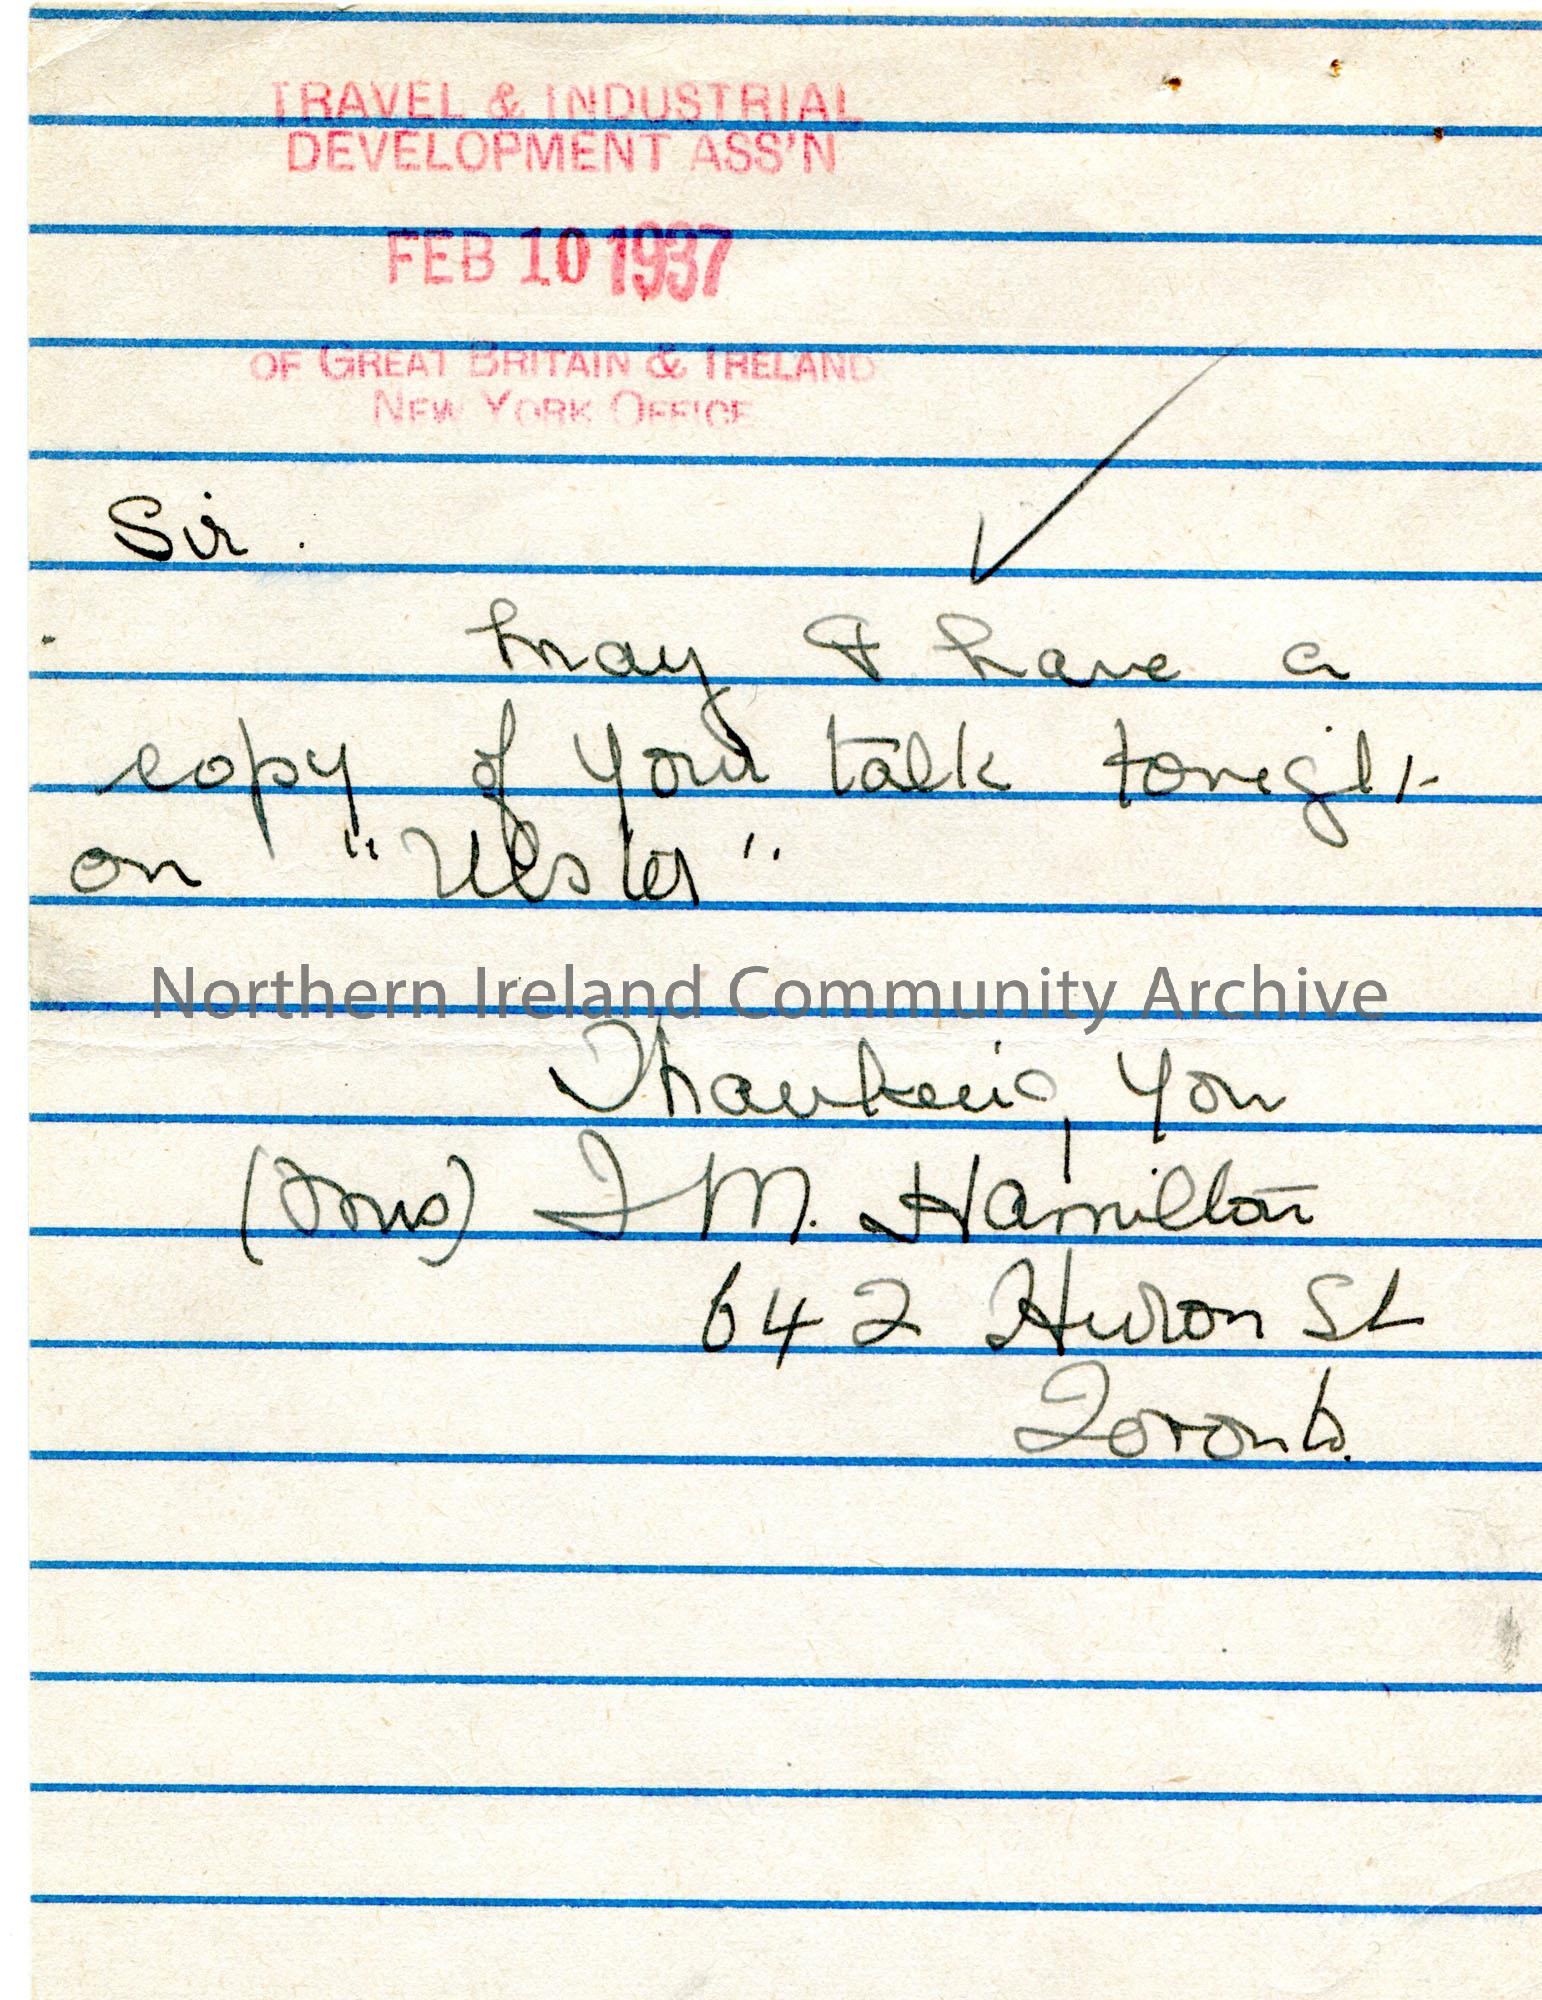 TRAVEL & INDUSTRIAL
DEVELOPMENT ASS'N
FEB 10 1937
OF GREAT BRITAIN & IRELAND
NEW YORK OFFICE
Sir.
May I have a
copy of your talk tonight
on "Ulster"
Northern Ireland Community Archive
Thanking you
(Mrs) J M. Hamilton
642 Huron St
Toronto.